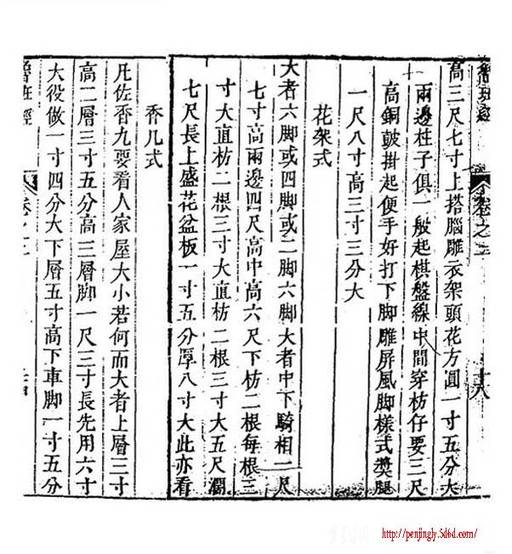 高三尺七寸上搭腦雕衣架頭花方圓一寸五分大
兩邊柱子俱一般起棋盤線中間穿枋仔要三尺
高銅鼓掛起便手好打下脚雕屏風脚樣式獎腿
一尺八寸高三寸三分大
花架式
大者六脚或四脚或二脚六脚大者中下騎相二尺
七寸高兩邊四尺高中高六尺下枋二根每根三
寸大直枋二根三寸大直枋二根三寸大五尺濶
七尺長上盛花盆板一寸五分厚八寸大此亦看
香几式
凡佐香九要看人家屋大小若何而大者上層三寸
高二層三寸五分高三層脚一尺三寸長先用六寸
大役做一寸四分大下層五寸高下車脚一寸五分
魯班經
http://penjingly.5d6d.com/